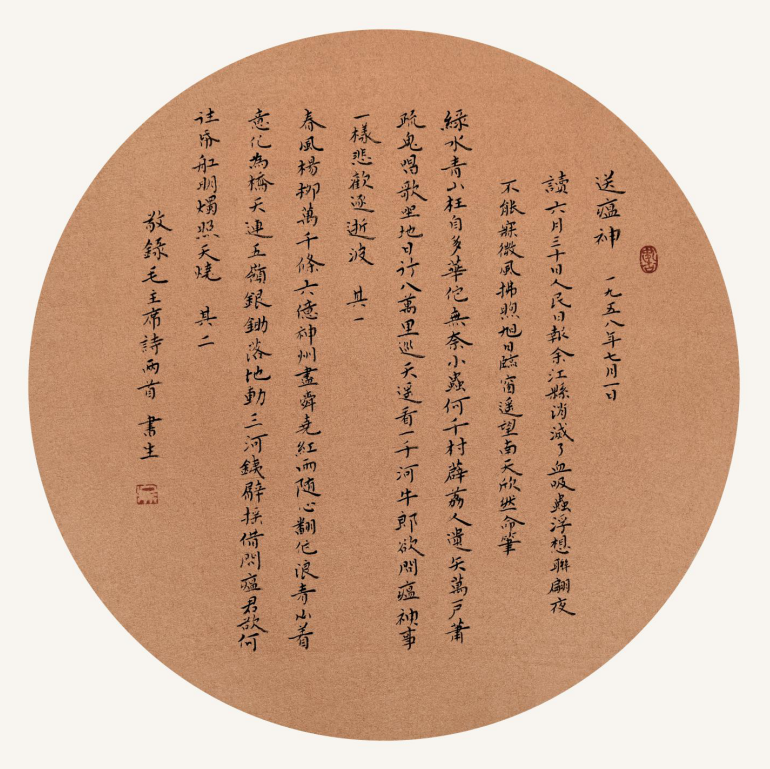 送瘟神 一九五八年七月一日
讀六月三十日人民日報余江縣消滅了血吸蟲浮想聯翩夜
不能寐微風拂煦旭日臨窗遥望南天欣然命筆
綠水青山枉自多華佗無奈小蟲何千村薜荔人遺矢萬戶蕭
疏鬼唱歌坐地日行八萬里巡天遥看一千河牛郎欲問瘟神事
一樣悲歡逐逝波 其一
春風楊柳萬千條六億神州盡舜堯紅雨随心翻作浪青山着
意化為橋天連五嶺銀鋤落地動三河鐵臂搖借問瘟君欲何
往紙船明燭照天燒 其二
敬錄毛主席詩兩首 書生